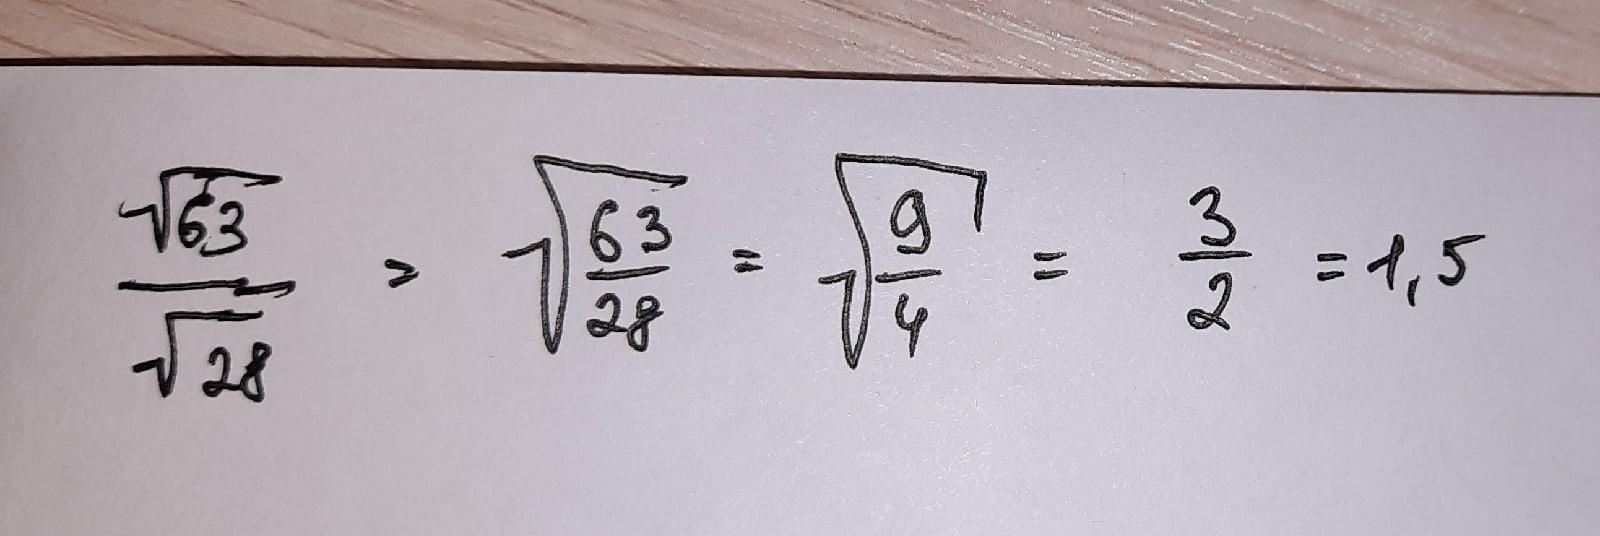 √63/√28 = √(63/28) = √(9/4) = 3/2 = 1,5